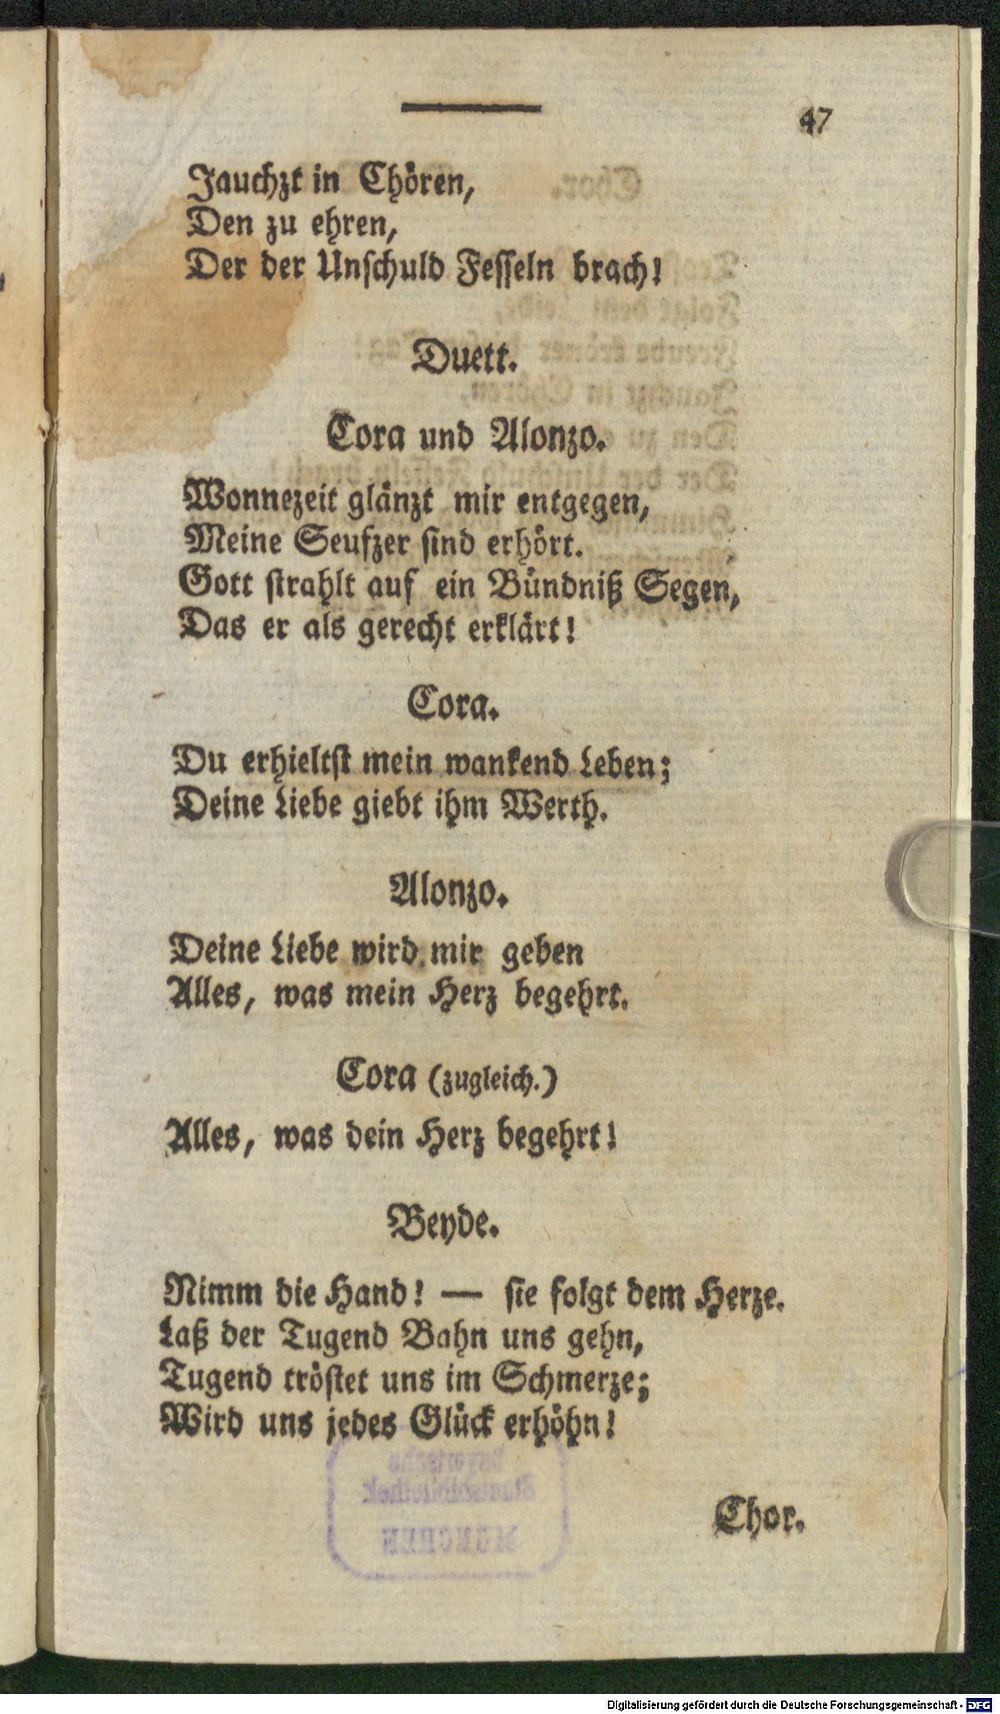 47
Jauchzt in Chören,
Den zu ehren,
Der der Unschuld Fesseln brach!
Duett.
Cora und Alonzo.
Wonnezeit glänzt mir entgegen,
Meine Seufzer sind erhört.
Gott strahlt auf ein Bündniß Segen,
Das er als gerecht erklärt!
Cora.
Du erhieltst mein wankend Leben;
Deine Liebe giebt ihm Werth.
Alonzo.
Deine Liebe wird mir geben
Alles, was mein Herz begehrt.
Cora (zugleich.)
Alles, was dein Herz begehrt!
Beyde.
Nimm die Hand! — sie folgt dem Herze.
Laß der Tugend Bahn uns gehn,
Tugend tröstet uns im Schmerze;
Wird uns jedes Glück erhöhn!
Bayerische
Staatsbibliothek
MÜNCHEN
Chor.
Digitalisierung gefördert durch die Deutsche Forschungsgemeinschaft - DFG